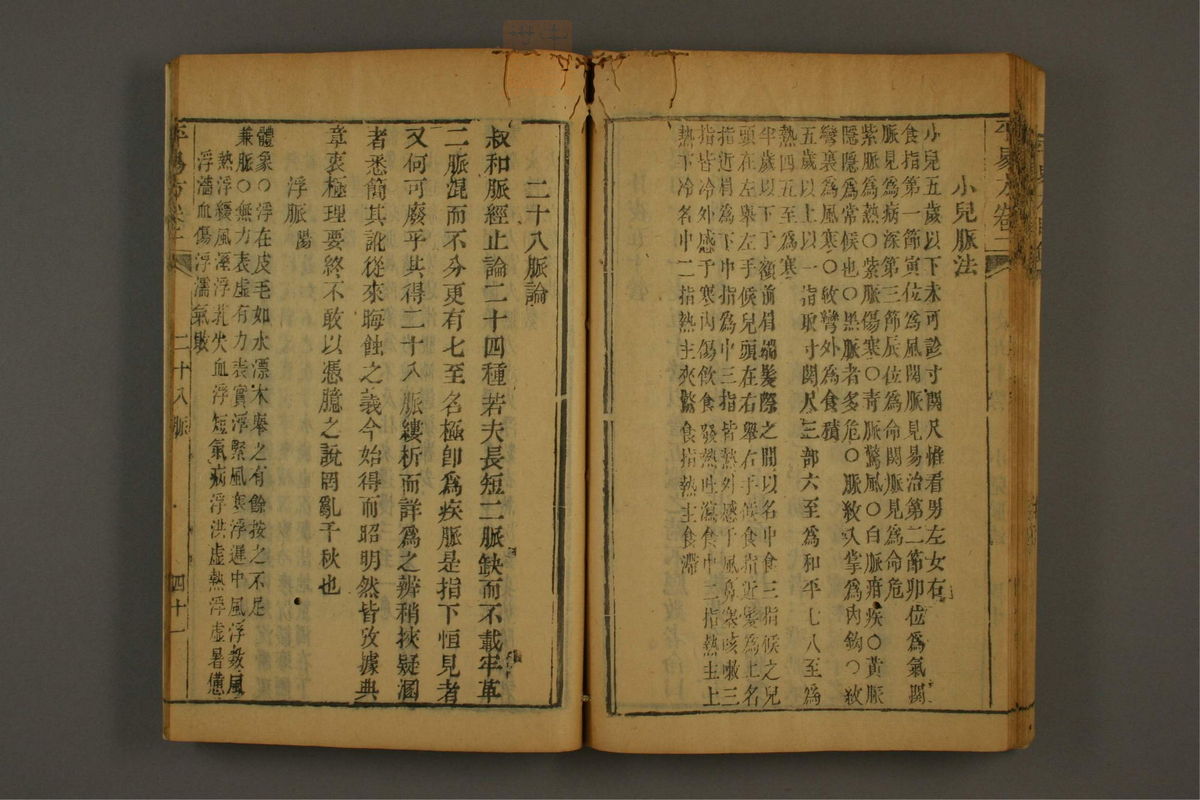 小兒脈法
小兒五歲以下未可診寸関尺惟看男左女右
食指第一節寅位為風関脈見易治第二節卯位為氣関
脈見為病深第三節辰位為命関脈見為命危
紫脈為熱○紫脈傷寒○青脈驚風○白脈疳疾○黃脈
隱隱為常候也○黒脈者多危○脈紋入掌為内鈎○紋
彎裏為風寒○紋彎外為食積
五歲以上以一指取寸関尺三部六至為和平七八至為
熱四五至為寒
半歲以下于額前眉端髮際之間以名中食三指候之兒
頭在左舉左手候兒頭在右舉右手候食指近髮為上名
指近眉為下中指為中三指皆熱外感于風鼻塞咳嗽三
指皆冷外感于寒内傷飲食發熱吐瀉食中二指熱主上
熱下冷名中二指熱主夾驚食指熱主食滯
二十八脈論
叔和脈經止論二十四種若夫長短二脈缺而不載牢革
二脈混而不分更有七至名極卽為疾脈是指下恒見者
又何可廢乎共得二十八脈縷析而詳為之辨稍挾疑溷
者悉簡其訛從來晦蝕之義今始得而昭明然皆攷據典
章衷極理要終不敢以憑臆之說罔亂千秋也
浮脈 陽
體象○浮在皮毛如水漂木舉之有餘按之不足
兼脈○無力表虛有力表實浮緊風寒浮遲中風浮數風
熱浮緩風溼浮芤失血浮短氣病浮洪虛熱浮虛暑憊
浮濇血傷浮濡氣敗
二十八脈
四十一